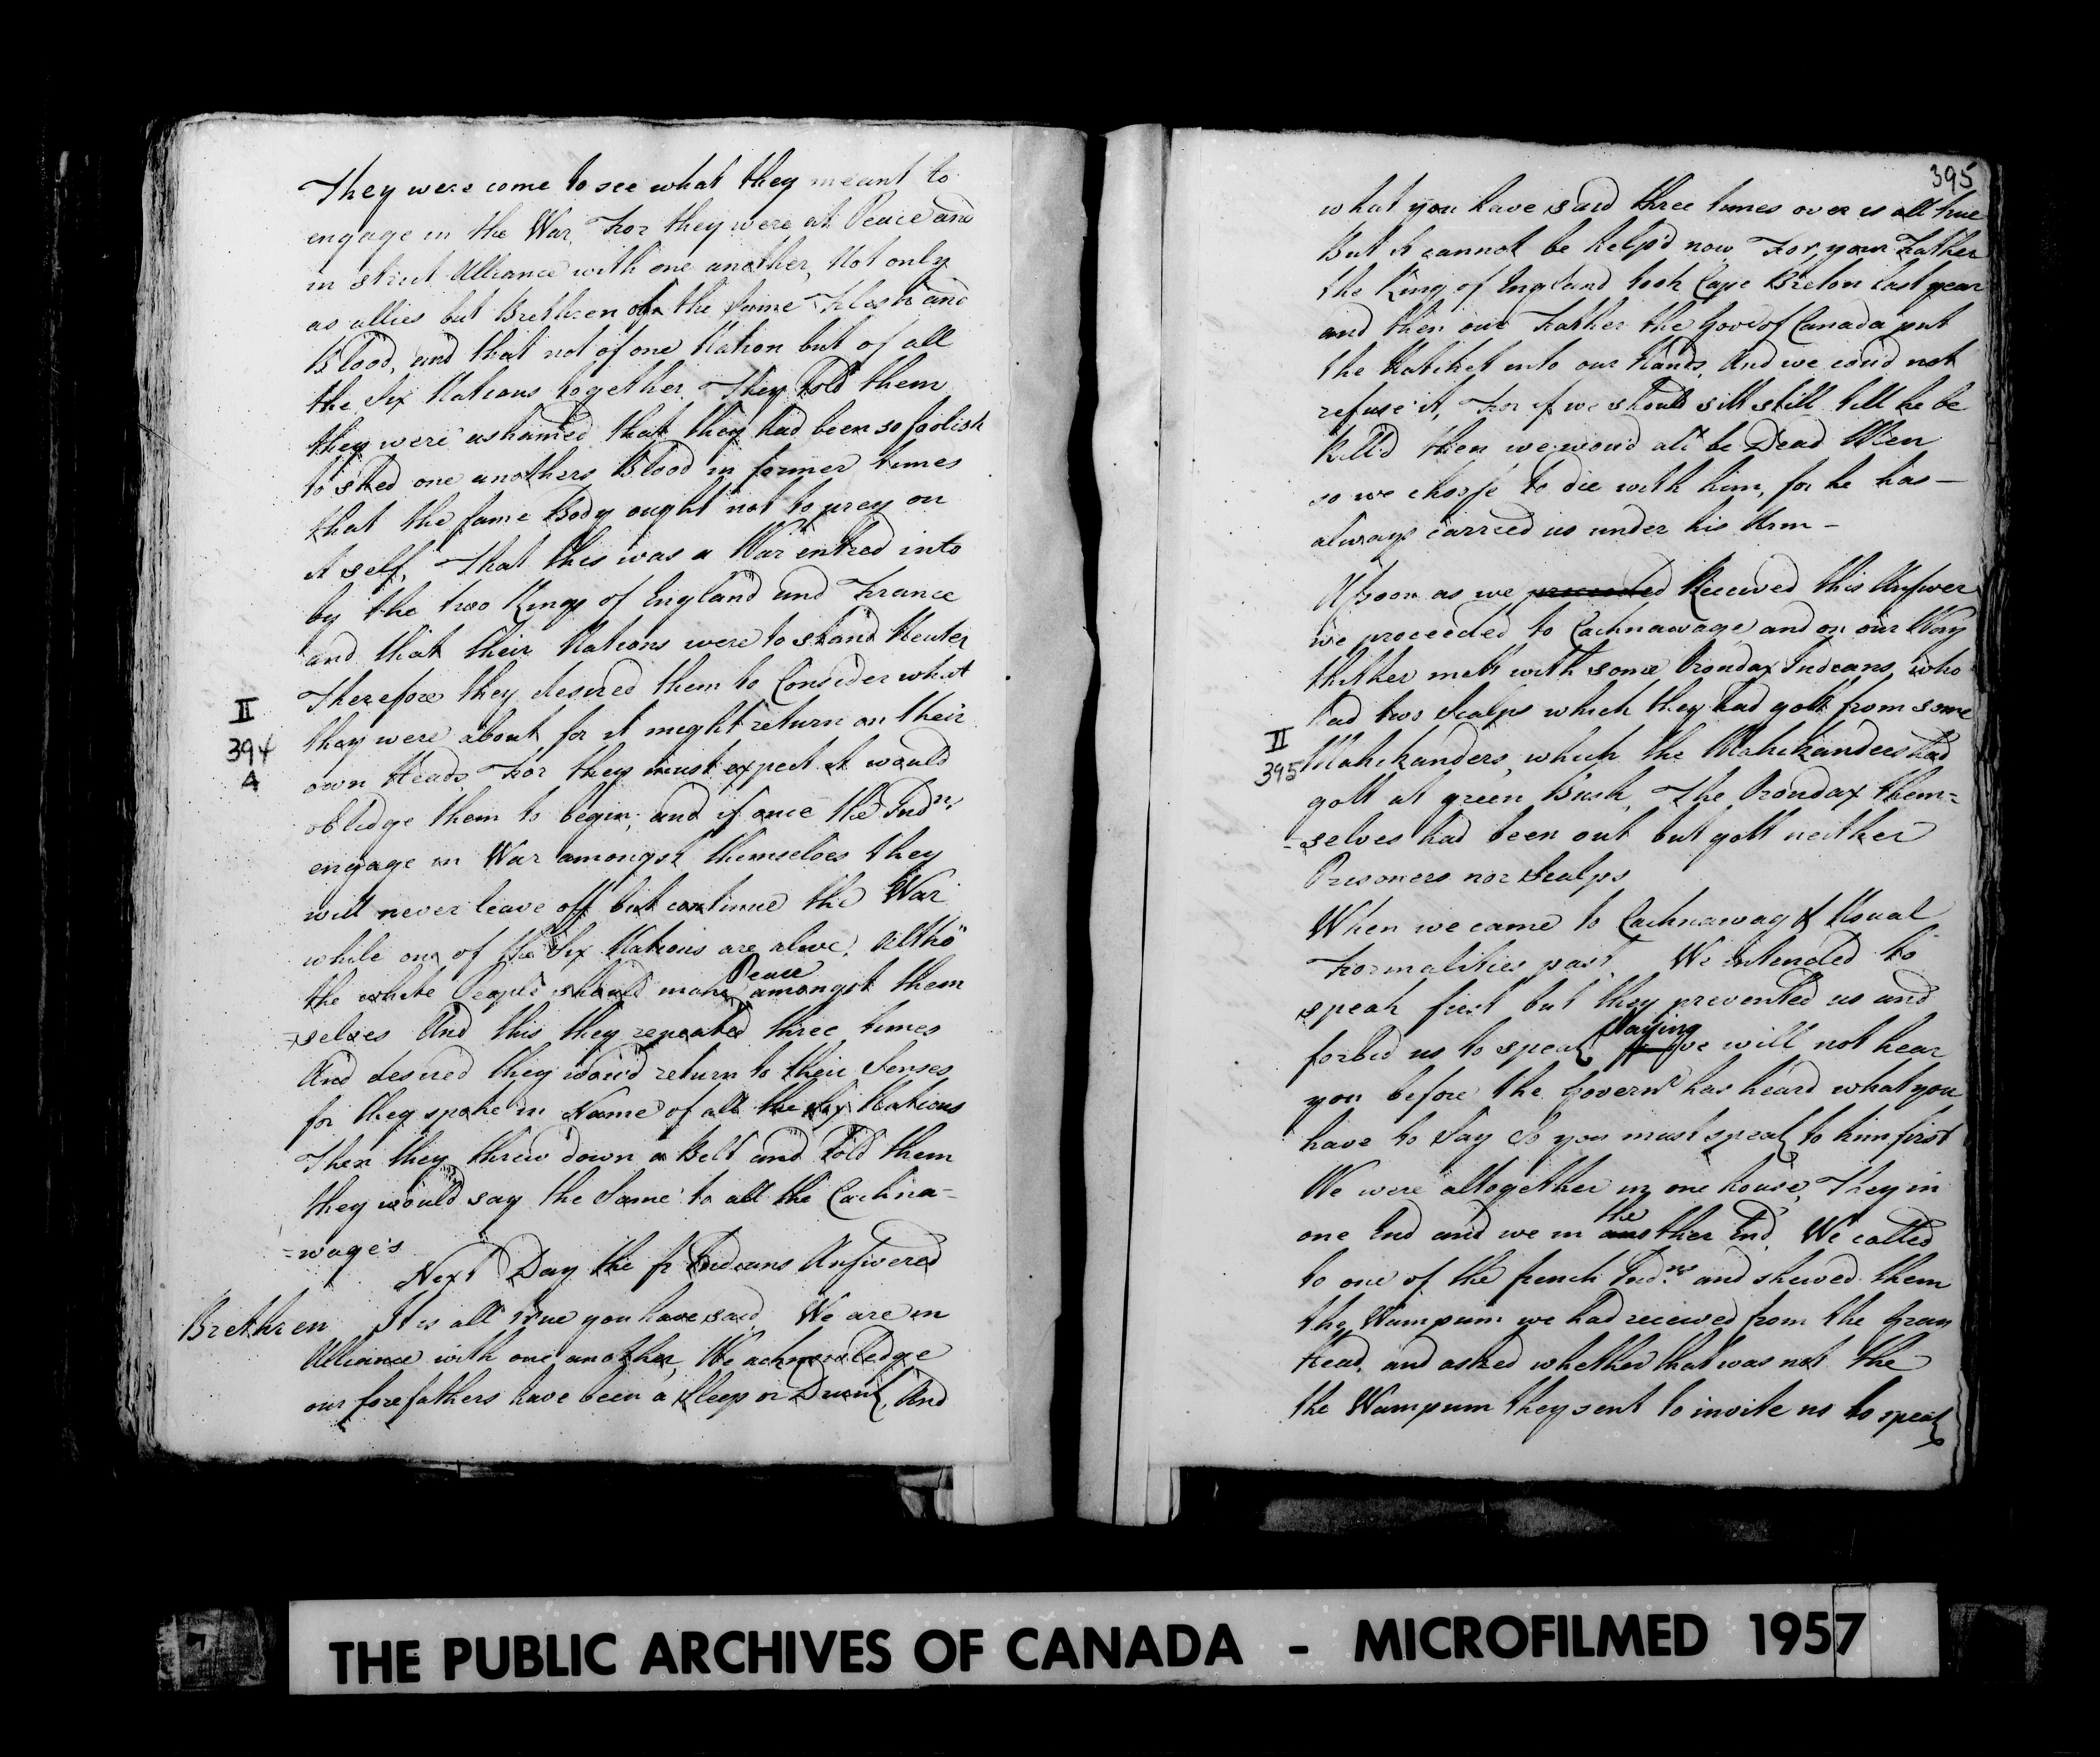 They were come to see what they meant to
engage in the War, For they were at Peace and
in strict Alliance with one another, Not only
as allies but Brethren of the same Flesh and
Blood, and that not of one Nation but of all
the Six Nations together. They Told them
they were ashamed that they had been so foolish
to shed one anothers Blood in former times
that the same Body ought not to prey on
it self, That this was a War entred into
by the two Kings of England and France
and that their Nations were to stand Neuter
Therefore they desired them to Consider what
they were about for it might return on their
own Heads, For they must expect it would
obledge them to begin, and if once the Indns
engage in War amongst themselves they
will never leave off but continue the War
while one of the Six Nations are alive, altho
the white People should make Peace amongst them
=selves And this they repeated three times
And desired they wou'd return to their Senses
for they spoke in Name of all the Six Nations
Then they threw down a Belt and Told them
they would say the Same to all the Cachna=
=wage's
Next Day the fr Indians Answered
Brethren It is all true you have said, We are in
Alliance with one another, We acknowledge
our forefathers have been a Sleep or Drunk, And
II
394
A
395
what you have said three times over is all true
But it cannot be help'd now, For, your Father
the King of England took Cape Breton last year
and then our Father the Govr of Canada put
the Hatchet into our Hands, And we cou'd not
refuse it, For if we should sitt still till he be
kill'd then we wou'd all be Dead Men
so we choose to die with him, for he has —
always carried us under his Arm —
Assoon as we proceeded Received this Answer
we proceeded to Cachnawage and on our Way
thither mett with some Orondax Indeans, who
had two Scalps which they had gott from some
Mahikanders, which the Mahikanders had
gott at green Bush, The Orondax them=
=selves had been out but gott neither
Prisoners nor Scalps
When we came to Cachnawag & Usual
Formalities past, We intended to
speak first but they prevented us and
forbid us to speak Saying we will not hear
you before the Governr has heard what you
have to Say So you must speak to him first
We were altogether in one house, They in
one End and we in the other End, We called
to one of the french Indns and shewed them
the Wampum we had received from the Gran
Head, and asked whether that was not the
the Wampum they sent to invite us to speak
II
395
THE PUBLIC ARCHIVES OF CANADA - MICROFILMED 1957